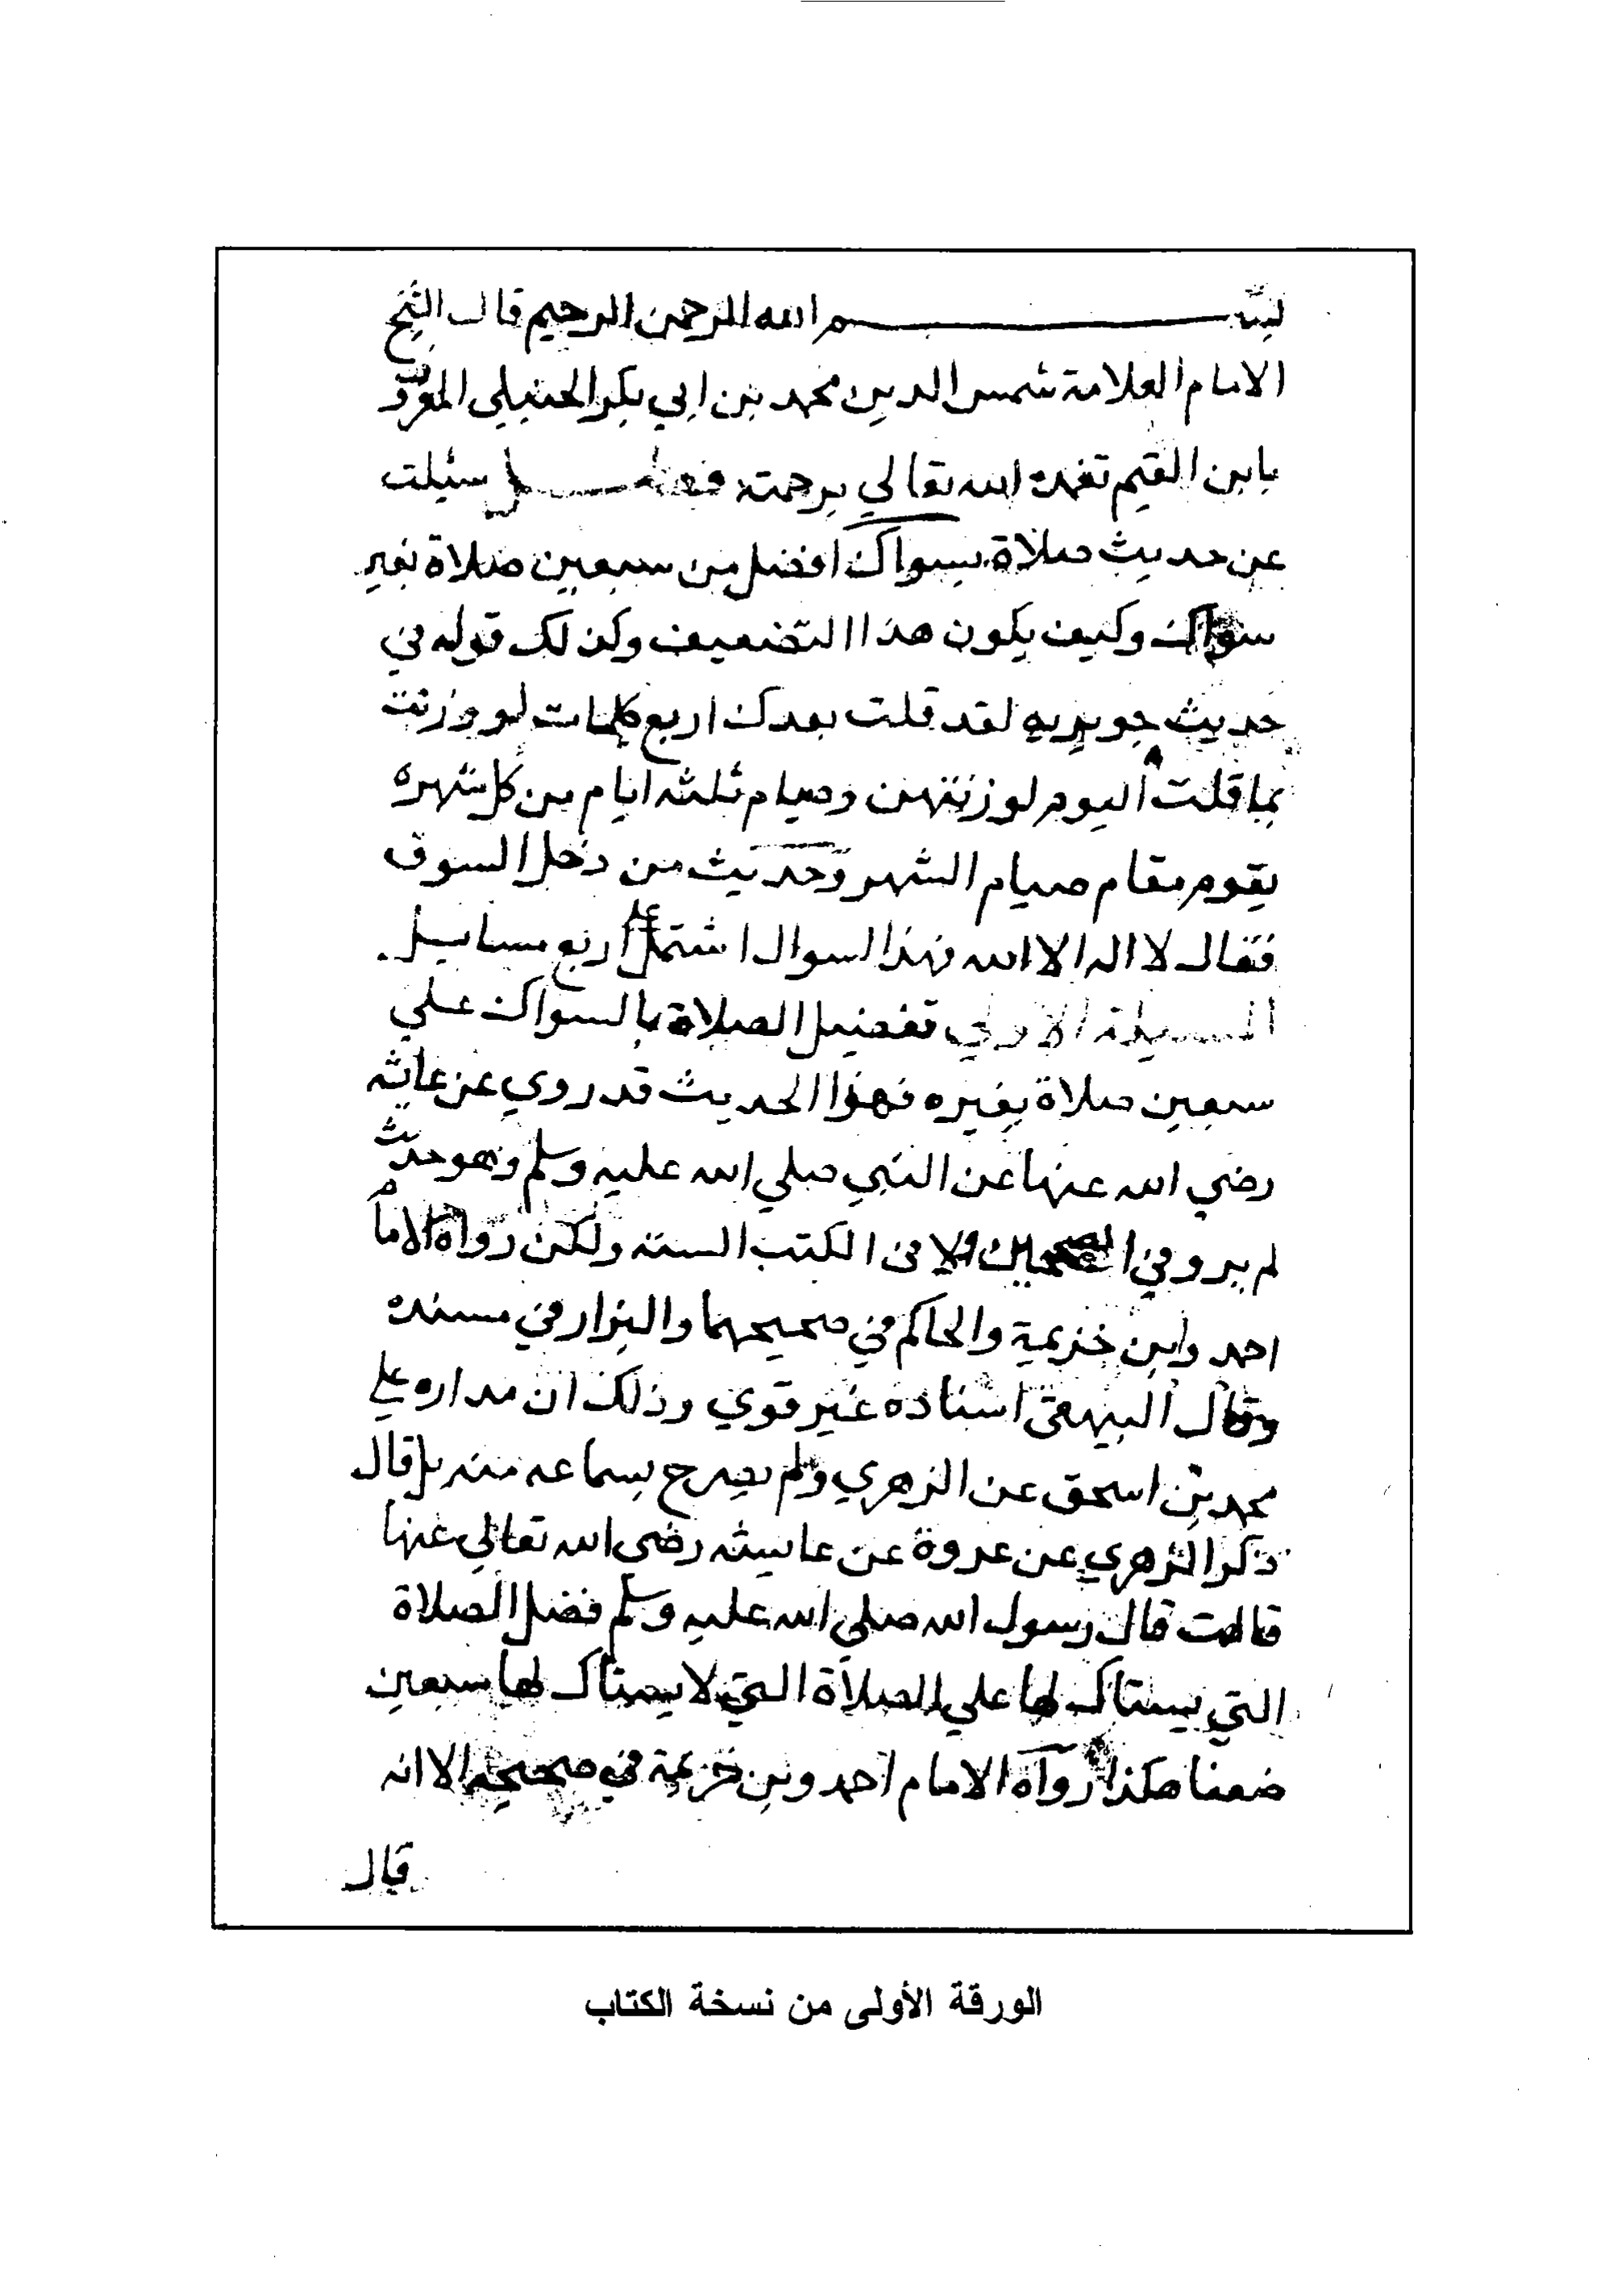 بسم الله الرحمن الرحيم قال الشيخ
الامام العلامة شمس الدين محمد بن ابي بكر الحنبلي المعروف
بابن القيم تغمده الله تعالي برحمته فصل سئلت
عن حديث صلاة بسواك افضل من سبعين صلاة بغير
سواك وكيف يكون هذا التضعيف وكذلك قوله في
حديث جويريه لقد قلت بعدك اربع كلمات لو وزنت
بما قلت اليوم لوزنتهن وصيام ثلثه ايام من كل شهره
يقوم مقام صيام الشهر وحديث من دخل السوق
فقال لا اله الا الله فهذا السوال اشتمل علي اربع مسايل
المسيلة الاولي تفضيل الصلاة بالسواك علي
سبعين صلاة بغيره فهذا الحديث قد روي عن عائشه
رضي الله عنها عن النبي صلي الله عليه وسلم وهو حديث
لم يرو في الصحيحين ولا في الكتب السته ولكن رواه الامام
احمد وابن خزيمة والحاكم في صحيحهما والبزار في مسنده
وقال البيهقي اسناده غير قوي وذلك ان مداره علي
محمد بن اسحق عن الزهري ولم يصرح بسماعه منه بل قال
ذكر الزهري عن عروة عن عايشه رضي الله تعالي عنها
قالت قال رسول الله صلي الله عليه وسلم فضل الصلاة
التي يستاك لها علي الصلاة التي لا يستاك لها سبعين
ضعفا هكذا رواه الامام احمد وبن خزيمة في صحيحه الا انه
قال
الورقة الأولى من نسخة الكتاب